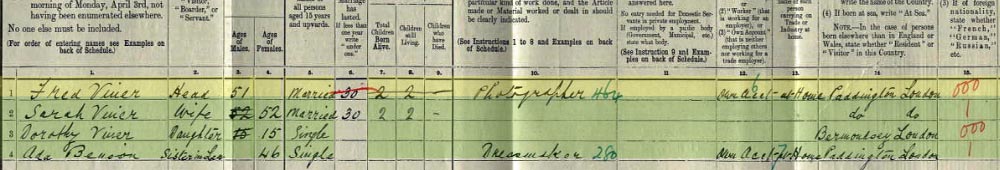 morning of Monday, April 3rd, not
having been enumerated elsewhere.
No one else must be included.
(For order of entering names see Examples on
back of Schedule.)
"Visitor,"
"Boarder," or
"Servant."
Ages
of
Males.
Ages
of
Females.
all persons
aged 15 years
and upwards.
has lasted.
If less than
one year
write
"under
one."
Total
Children
Born
Alive.
Children
still
Living.
Children
who
have
Died.
particular kind of work done, and the Article
made or Material worked or dealt in should
be clearly indicated.
(See Instructions 1 to 8 and Examples on back
of Schedule.)
answered here.
No entry needed for Domestic Servants in private employment.
If employed by a public body
(Government, Municipal, etc.)
state what body.
(See Instruction 9 and Examples on back of Schedule.)
(2) "Worker" (that
is working for an
employer), or
(3) "Own Account"
(that is neither
employing others
nor working for
a trade employer).
carrying on
Trade or
Industry at
home.
(4) If born at sea, write "At Sea."
NOTE.—In the case of persons
born elsewhere than in England or
Wales, state whether "Resident" or
"Visitor" in this Country.
(3) If of foreign
nationality,
state whether
"French,"
"German,"
"Russian,"
etc.
1. 2. 3. 4. 5. 6. 7. 8. 9. 10. 11. 12. 13. 14. 15.
1 Fred Viner Head 51 Married 30 2 2 - Photographer 464 Own Acct at Home Paddington London 000
2 Sarah Viner Wife 52 52 Married 30 2 2 - do do 1
3 Dorothy Viner Daughter 15 15 Single Bermondsey London 000
4 Ada Benson Sister in Law 46 Single Dressmaker 280 Own Acct At Home Paddington London 1